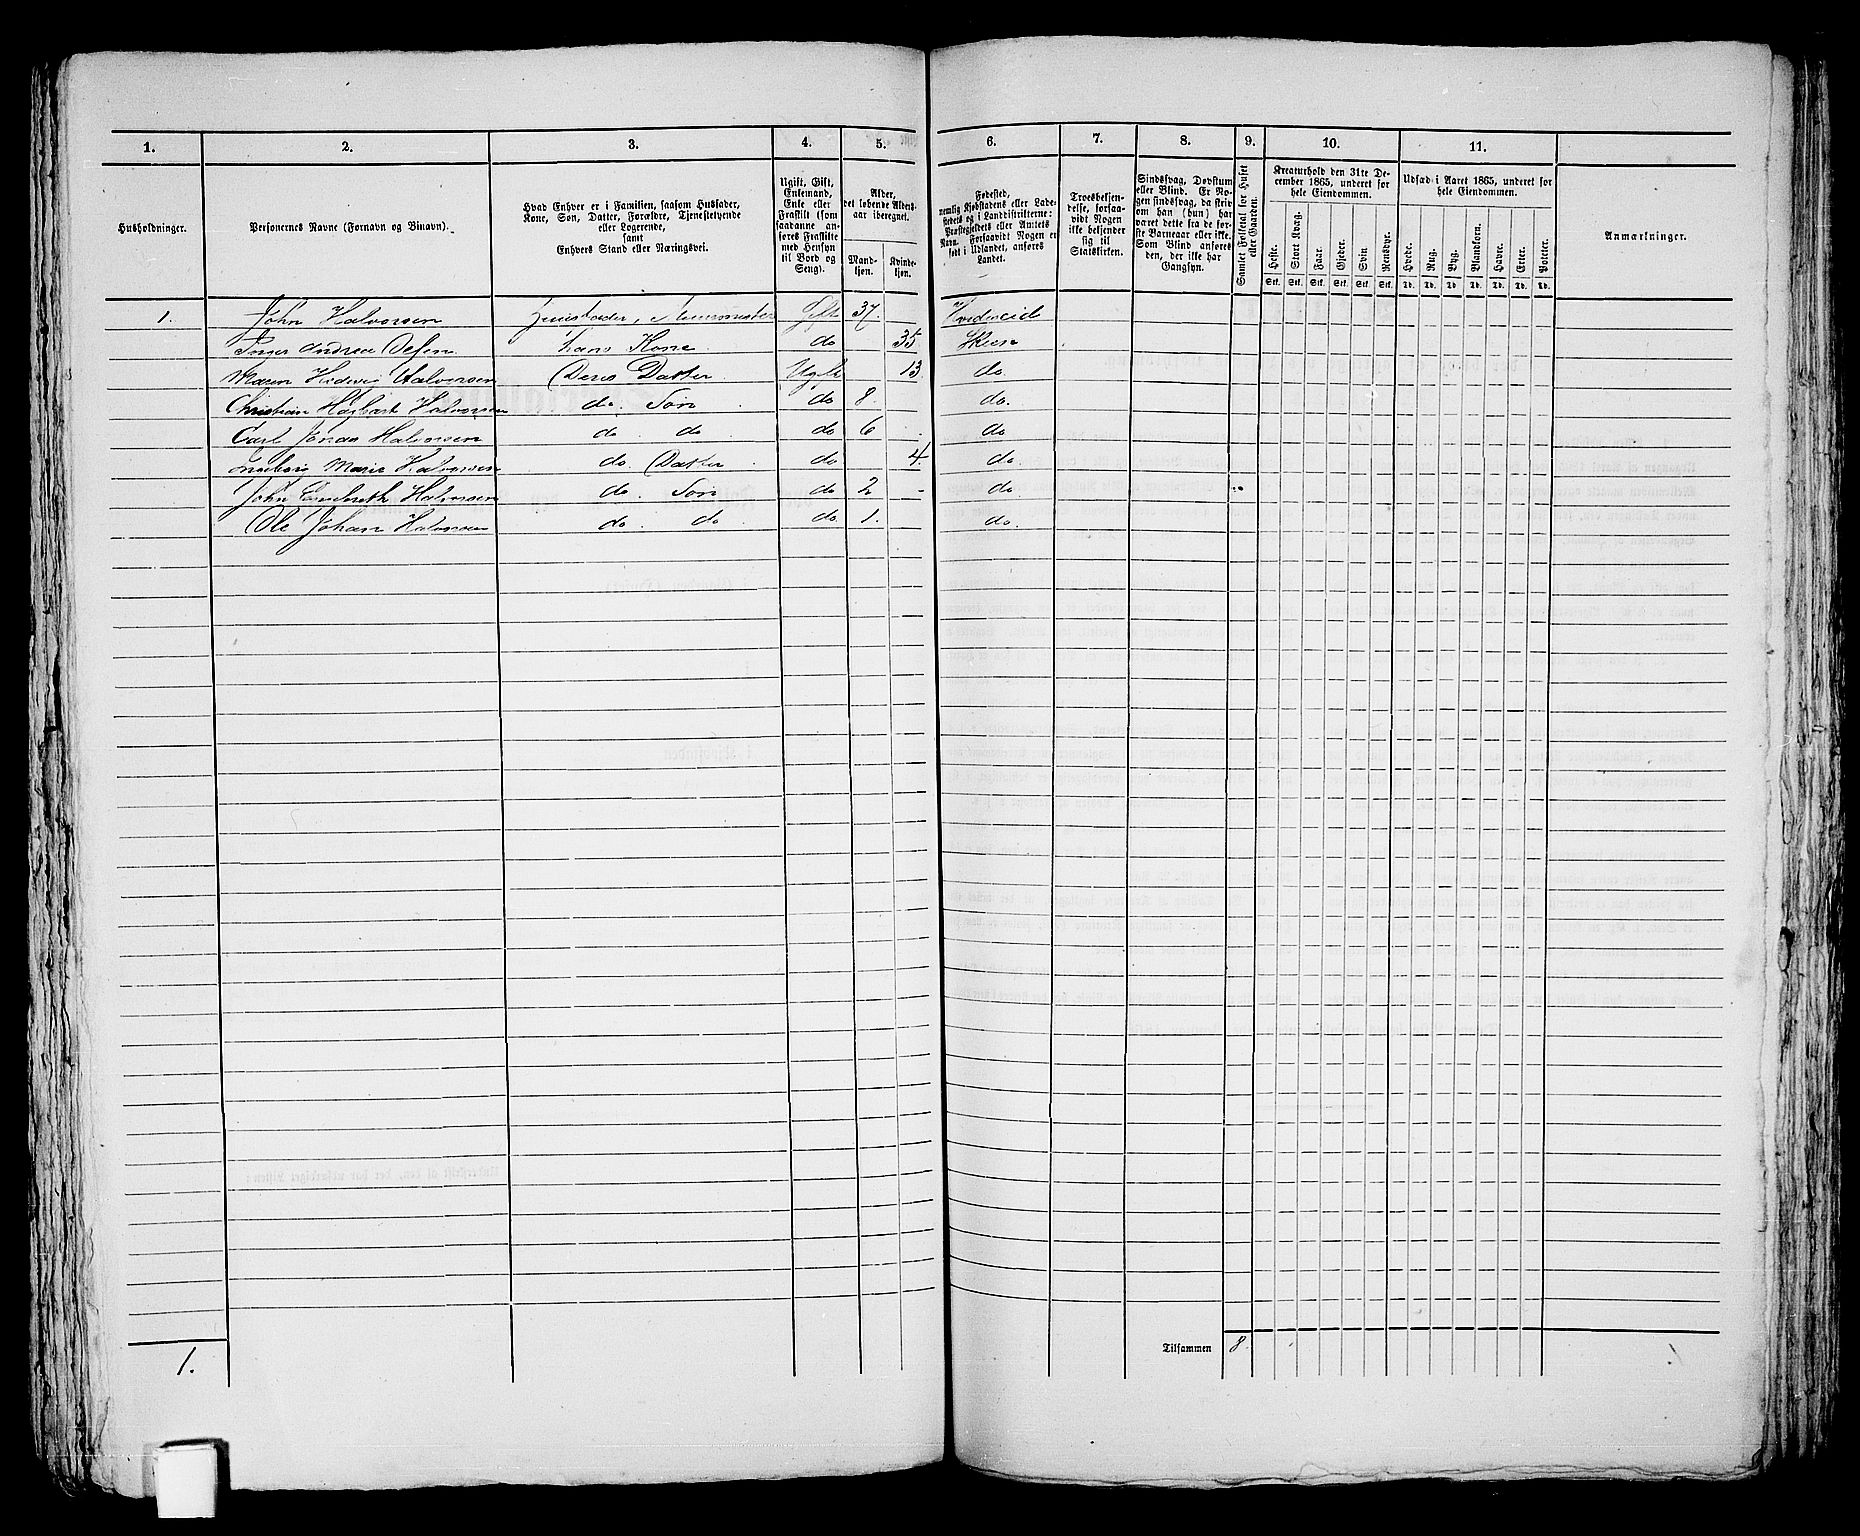 1. 2. 3. 4. 5. 6. 7. 8. 9. 10. 11.
Husholdninger.
Personernes Navne (Fornavn og Binavn).
Hvad Enhver er i Familien, saasom Husfader,
Kone, Søn, Datter, Forældre, Tjenestetyende
eller Logerende,
samt
Enhvers Stand eller Næringsvei.
Ugift, Gift,
Enkemand,
Enke eller
Fraskilt (som
saadanne an-
føres Fraskilte
med Hensyn
til Bord og
Seng).
Alder,
det løbende Alders-
aar iberegnet.
Mand-
kjøn.
Kvinde-
kjøn.
Fødested,
nemlig Kjøbstadens eller Lade-
stedets og i Landdistrikterne:
Præstegjeldets eller Amtets
Navn. Forsaavidt Nogen er
født i Udlandet, anføres
Landet.
Troesbekjen-
delse, forsaa-
vidt Nogen
ikke bekjender
sig til
Statskirken.
Sindssvag, Døvstum
eller Blind. Er No-
gen sindssvag, da skriv
om han (hun) har
været dette fra de før-
ste Barneaar eller ikke.
Som Blind anføres
den, der ikke har
Gangsyn.
Samlet Folketal for Huset
eller Gaarden.
Kreaturhold den 31te De-
cember 1865, underet for
hele Eiendommen.
Heste. Stort Kvæg. Faar. Gjeder. Svin Rensdyr.
Stk. Stk. Stk. Stk. Stk. Stk.
Udsæd i Aaret 1865, underet for
hele Eiendommen.
Hvede. Rug. Byg. Blandkorn. Havre. Erter. Poteter.
Td. Td. Td. Td. Td. Td. Td.
Anmærkninger.
1. John Halvorsen Huusfader, Gift 37.
Andrea hans Kone do 35 Skien
Maren Hedevig Halvorsen Deres Datter Ugift 13. do.
Christian Hagbart Halvorsen do. Søn do 8. do.
Carl Jonas Halvorsen do. do do 6 do
Ingeborg Marie Halvorsen do. Datter do 4. do.
John Engebreth Halvorsen do. Søn do 2 do.
Ole Johan Halvorsen do. do. do. 1. do.
Tilsammen 8.
1.